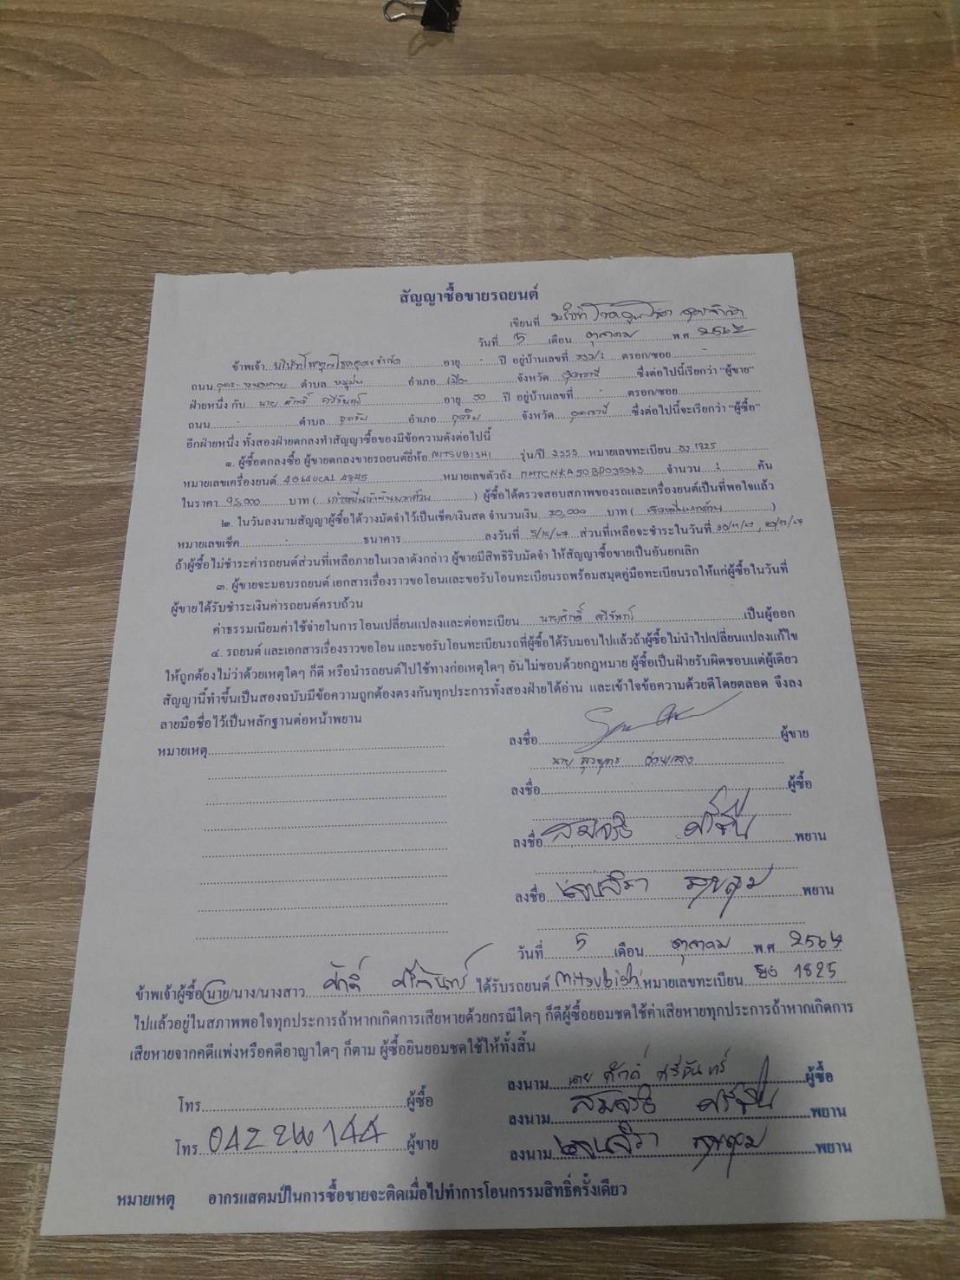 สัญญาซื้อขายรถยนต์
เขียนที่
วันที่ 5 เดือน ตุลาคม พ.ศ. 2567
ข้าพเจ้า อายุ - ปี อยู่บ้านเลขที่ ตรอก/ซอย
ถนน ตำบล หมูม่น อำเภอ เมือง จังหวัด อุดรธานี ซึ่งต่อไปนี้เรียกว่า "ผู้ขาย"
ฝ่ายหนึ่ง กับ นาย ศักดิ์ ศรีจันทร์ อายุ ปี อยู่บ้านเลขที่ ตรอก/ซอย
ถนน ตำบล อำเภอ จังหวัด อุดรธานี ซึ่งต่อไปนี้จะเรียกว่า "ผู้ซื้อ"
อีกฝ่ายหนึ่ง ทั้งสองฝ่ายตกลงทำสัญญาซื้อของมีข้อความดังต่อไปนี้
๑. ผู้ซื้อตกลงซื้อ ผู้ขายตกลงขายรถยนต์ยี่ห้อ MITSUBISHI รุ่น/ปี หมายเลขทะเบียน 1825
หมายเลขเครื่องยนต์ หมายเลขตัวถัง จำนวน 1 คัน
ในราคา 95,000 บาท ( เก้าหมื่นห้าพันบาทถ้วน ) ผู้ซื้อได้ตรวจสอบสภาพของรถและเครื่องยนต์เป็นที่พอใจแล้ว
๒. ในวันลงนามสัญญาผู้ซื้อได้วางมัดจำไว้เป็นเช็ค/เงินสด จำนวนเงิน บาท ( )
หมายเลขเช็ค - ธนาคาร ลงวันที่ 5/10/67 ส่วนที่เหลือจะชำระในวันที่
ถ้าผู้ซื้อไม่ชำระค่ารถยนต์ส่วนที่เหลือภายในเวลาดังกล่าว ผู้ขายมีสิทธิริบมัดจำ ให้สัญญาซื้อขายเป็นอันยกเลิก
๓. ผู้ขายจะมอบรถยนต์ เอกสารเรื่องราวขอโอนและขอรับโอนทะเบียนรถพร้อมสมุดคู่มือทะเบียนรถให้แก่ผู้ซื้อในวันที่
ผู้ขายได้รับชำระเงินค่ารถยนต์ครบถ้วน
ค่าธรรมเนียมค่าใช้จ่ายในการโอนเปลี่ยนแปลงและต่อทะเบียน นายศักดิ์ ศรีจันทร์ เป็นผู้ออก
๔. รถยนต์ และเอกสารเรื่องราวขอโอน และขอรับโอนทะเบียนรถที่ผู้ซื้อได้รับมอบไปแล้วถ้าผู้ซื้อไม่นำไปเปลี่ยนแปลงแก้ไข
ให้ถูกต้องไม่ว่าด้วยเหตุใดๆ ก็ดี หรือนำรถยนต์ไปใช้ทางก่อเหตุใดๆ อันไม่ชอบด้วยกฎหมาย ผู้ซื้อเป็นฝ่ายรับผิดชอบแต่ผู้เดียว
สัญญานี้ทำขึ้นเป็นสองฉบับมีข้อความถูกต้องตรงกันทุกประการทั้งสองฝ่ายได้อ่าน และเข้าใจข้อความด้วยดีโดยตลอด จึงลง
ลายมือชื่อไว้เป็นหลักฐานต่อหน้าพยาน
หมายเหตุ
ลงชื่อ ผู้ขาย
ลงชื่อ ผู้ซื้อ
ลงชื่อ พยาน
ลงชื่อ พยาน
วันที่ 5 เดือน ตุลาคม พ.ศ. 2567
ข้าพเจ้าผู้ซื้อ นาย/นาง/นางสาว ศักดิ์ ศรีจันทร์ ได้รับรถยนต์ Mitsubishi หมายเลขทะเบียน 1825
ไปแล้วอยู่ในสภาพพอใจทุกประการถ้าหากเกิดการเสียหายด้วยกรณีใดๆ ก็ดีผู้ซื้อยอมชดใช้ค่าเสียหายทุกประการถ้าหากเกิดการ
เสียหายจากคดีแพ่งหรือคดีอาญาใดๆ ก็ตาม ผู้ซื้อยินยอมชดใช้ให้ทั้งสิ้น
ลงนาม นาย ศักดิ์ ศรีจันทร์ ผู้ซื้อ
โทร. ผู้ซื้อ
ลงนาม พยาน
โทร. ผู้ขาย
ลงนาม พยาน
หมายเหตุ อากรแสตมป์ในการซื้อขายจะติดเมื่อไปทำการโอนกรรมสิทธิ์ครั้งเดียว